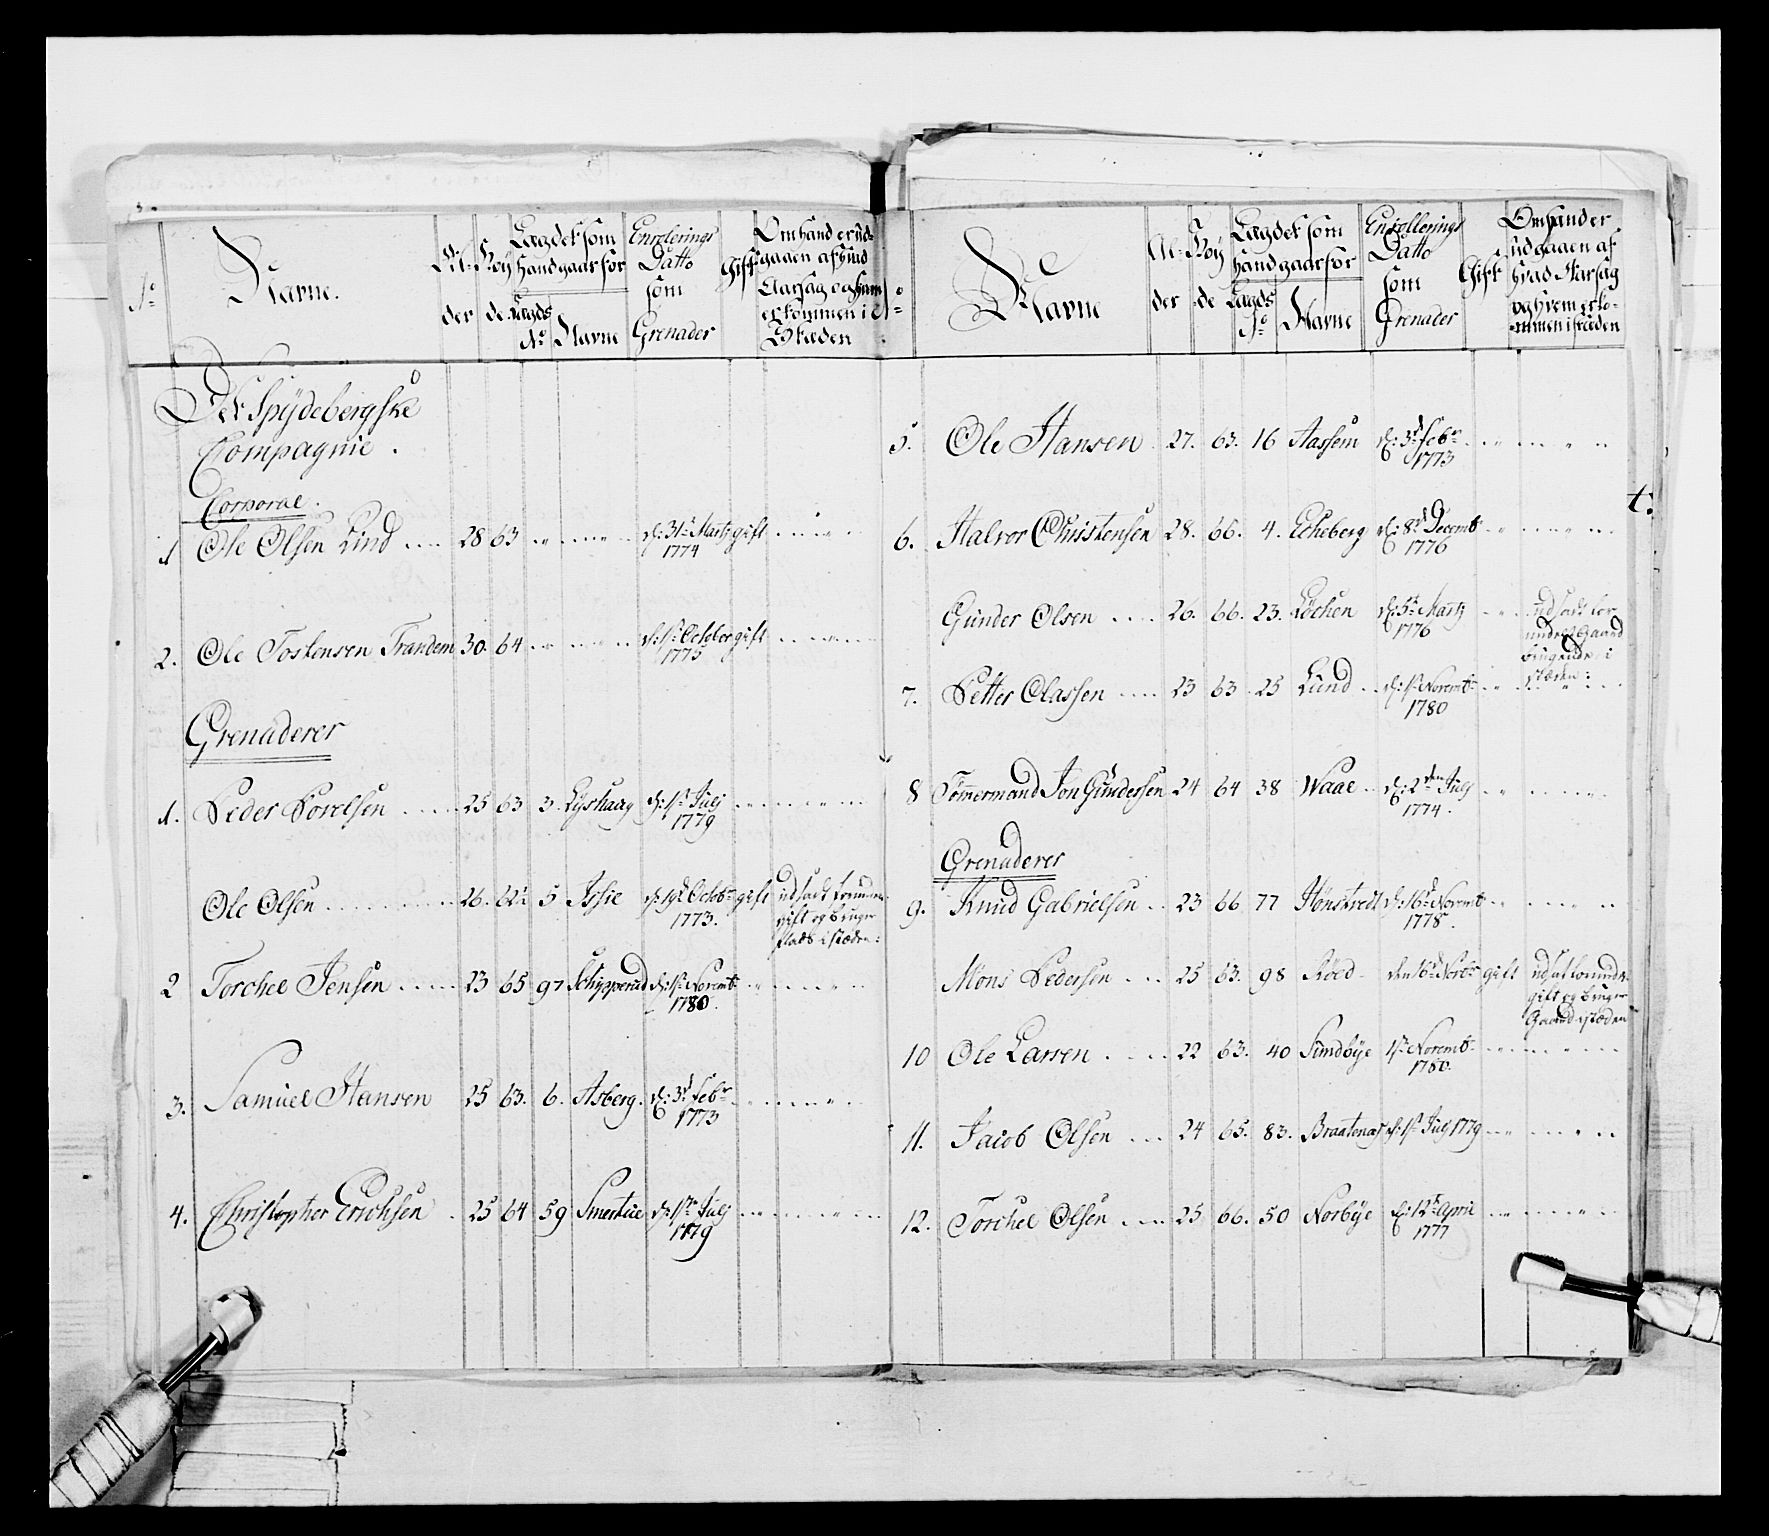 No
Navne.
Al=
der
Höy
de
Lagdet som
hand gaar for
Lagds
No
Navne
Enrolerings
Datto
som
Grenader
Gift
Om hand er ud=
gaaen af hvad
Aarsag og hvem
er kommen i
Stæden
Det Spÿdebergske
Compagnie.
Corporal.
1 Ole Olsen Lind 28 63 d: 31te Martz gift
1774
2. Ole Tostensen Trandem 30. 64 d: 1te October gift
1775
Grenaderer
1. Peder Povelsen 25 63 3. Lÿshaug d: 1te Julj
1779
Ole Olsen 26. 62½ 5 Issie d: 19d Octobr gift udsadt formedelst
1773. gift og bruger
Plads i stæden:
2 Torchel Jensen 23 65 97 Schipperud d: 1te Novemb:
1780.
3. Samuel Hansen 25 63. 6. Asberg. d: 3d Febr
1773
4. Christopher Erichsen 25 64 59 Smertue d: 1te Julj
1779
No
Navne
Al=
der
Höy
de
Lagdet som
hand gaar for
Lagds
No
Navne
Enrollerings
Datto
som
Grenader
Gift
Om hand er
udgaaen af
hvad Aarsag
og hvem er ko-
mmen i stæden
5. Ole Hansen 27. 63. 16 Aassem d: 3d Febr
1773
t:
6. Halvor Christensen 28. 66. 4. Echeberg d: 8d Decemb
1776
Gunder Olsen 26. 66. 23. Löchen d: 5te Martz udsadt for
1776 Gaard
brugende i
stæden:
7. Petter Olassen 23 63 25 Lund d: 1te Novemb:
1780
8 Tömmermand Jon Gundersen 24 64 38 Waae d: 2den Julj
1774.
Grenaderer
9. Knud Gabrielsen 23 66 77 Hönstvedt d: 16d Novemb
1778.
Mons Pedersen 25 63. 98 Röed den 16d Novbr gift udsat formedelst
gift og bruger
Gaard i stæden
10 Ole Larsen 22 63. 40 Sundbÿe 1te Novemb:
1780.
11. Jacob Olsen 24 65. 83. Braatenas d: 1te Julj 1779
12. Torchel Olsen 25 66. 50 Norbÿe d: 12te April
1777